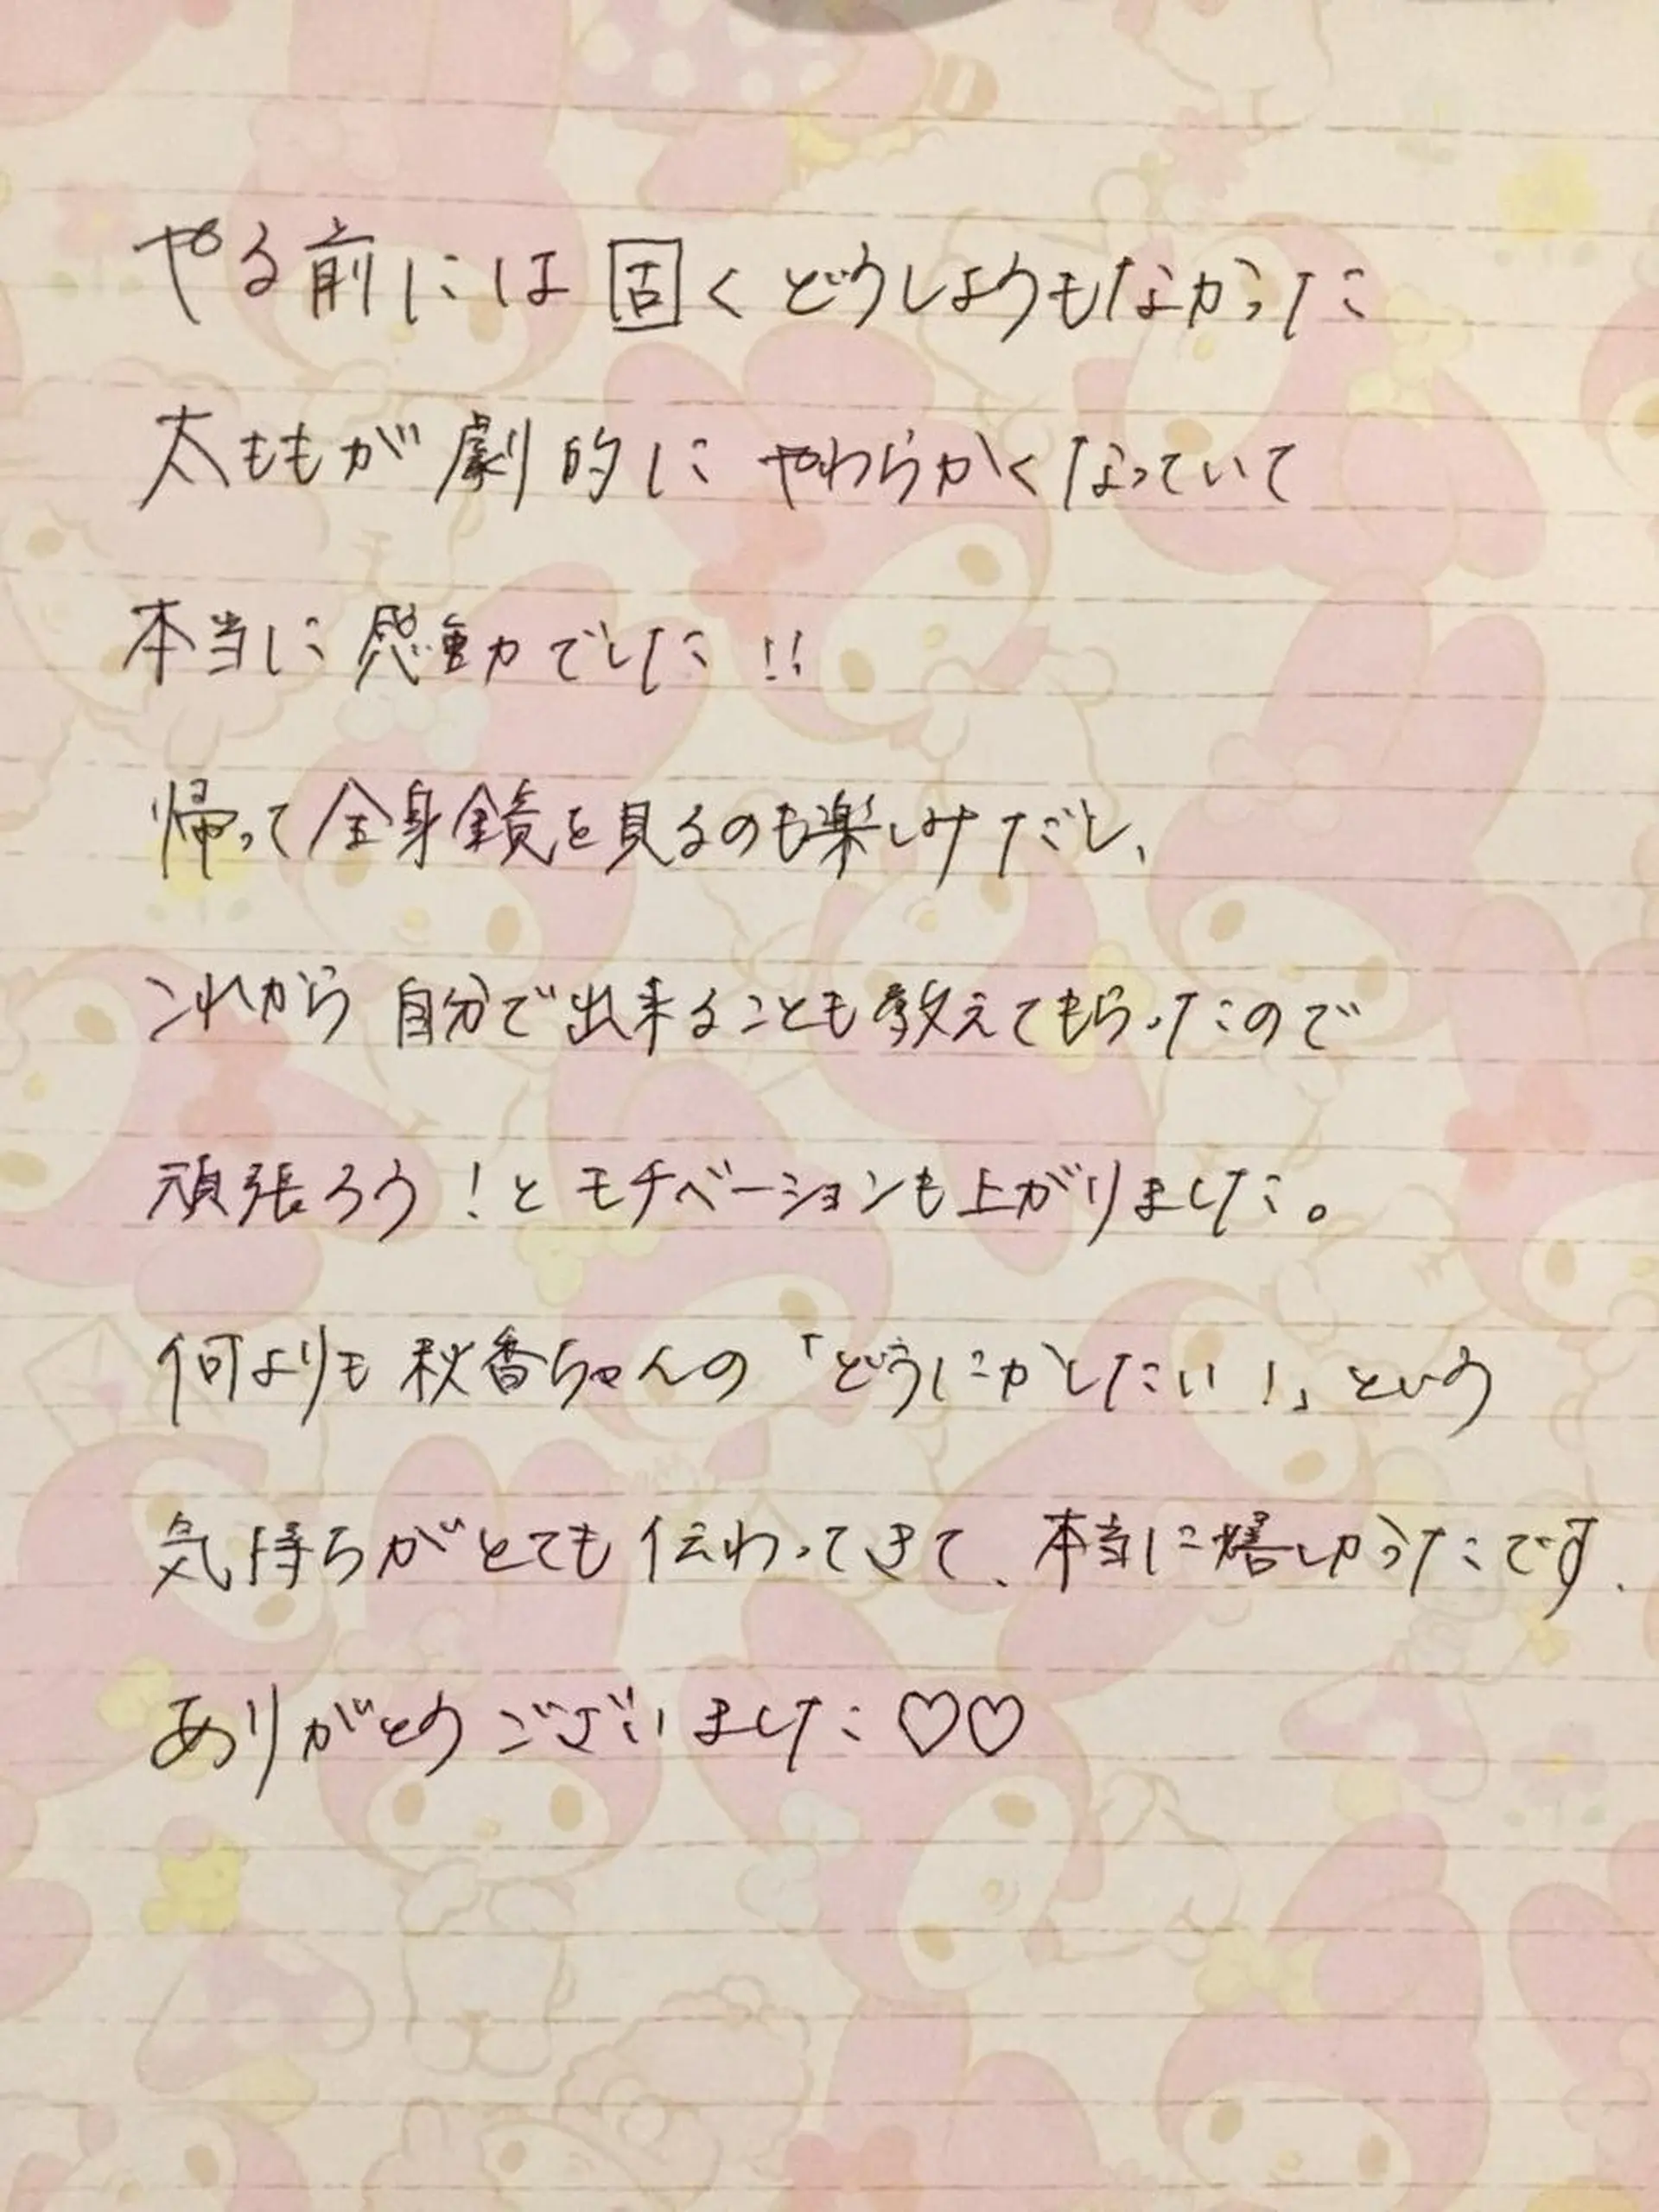 やる前には固くどうしようもなかった
太ももが劇的にやわらかくなっていて
本当に感動でした!!
帰って全身鏡を見るのも楽しみだし、
これから自分で出来ることも教えてもらったので
頑張ろう!とモチベーションも上がりました。
何よりも秋香ちゃんの「どうにかしたい!」という
気持ちがとても伝わってきて、本当に嬉しかったです.
ありがとうございました♡♡